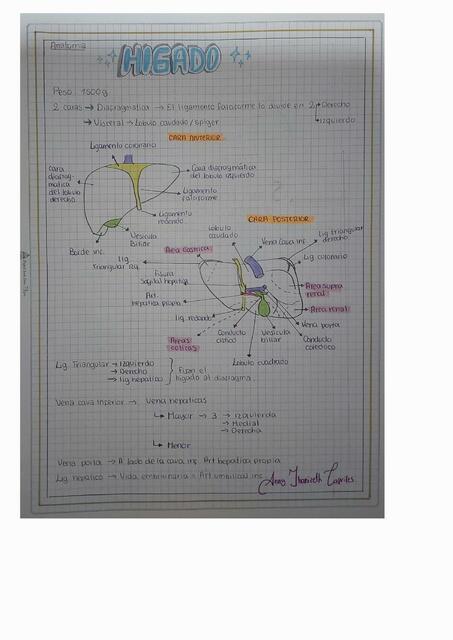 Anatomía
HIGADO
Peso 1500g
2 caras → Diafragmática → El ligamento falsiforme lo divide en 2 → Derecho
→ Izquierdo
→ Visceral → Lobulo caudado/spiger
CARA ANTERIOR
Ligamento coronario
Cara diafragmática del lobulo derecho
Cara diafragmática del lobulo izquierdo
Ligamento falsiforme
Ligamento redondo
Vesicula Biliar
Borde inf.
CARA POSTERIOR
Lobulo caudado
Vena Cava inf.
Lig triangular derecho
Lig coronario
Area Gastrica
Lig. Triangular izq
Fisura Sagital hepatica
Area supra renal
Art. hepatica propia
Area renal
lig. redondo
Vena porta
Areas colicas
Conducto cistico
Vesicula biliar
Conducto coledoco
Lobulo cuadrado
Lig. Triangular → Izquierdo
→ Derecho
→ lig hepatico
Fijan el higado al diafragma.
Vena cava Inferior → Vena hepaticas
↳ Mayor → 3 → Izquierda
→ Medial
→ Derecha
↳ Menor
Vena porta → A lado de la cava inf. Art hepatica propia
Lig. hepatico → Vida embrionaria = Art umbilical inc.